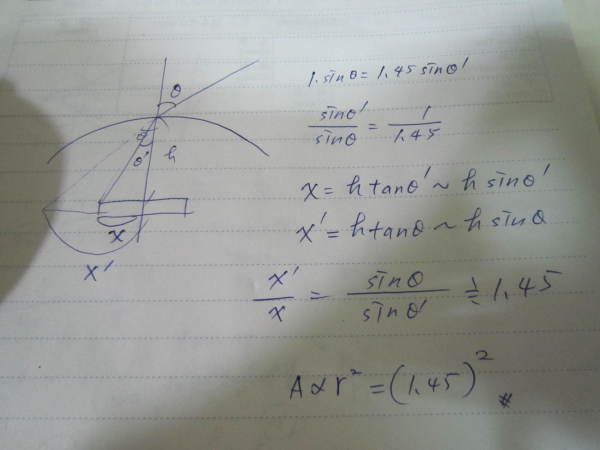 θ
θ
θ'
h
x
x'
1.sinθ = 1.45 sinθ'
sinθ' / sinθ = 1 / 1.45
x = h tanθ' ~ h sinθ'
x' = h tanθ ~ h sinθ
x' / x = sinθ / sinθ' ≑ 1.45
A ∝ r² = (1.45)² #